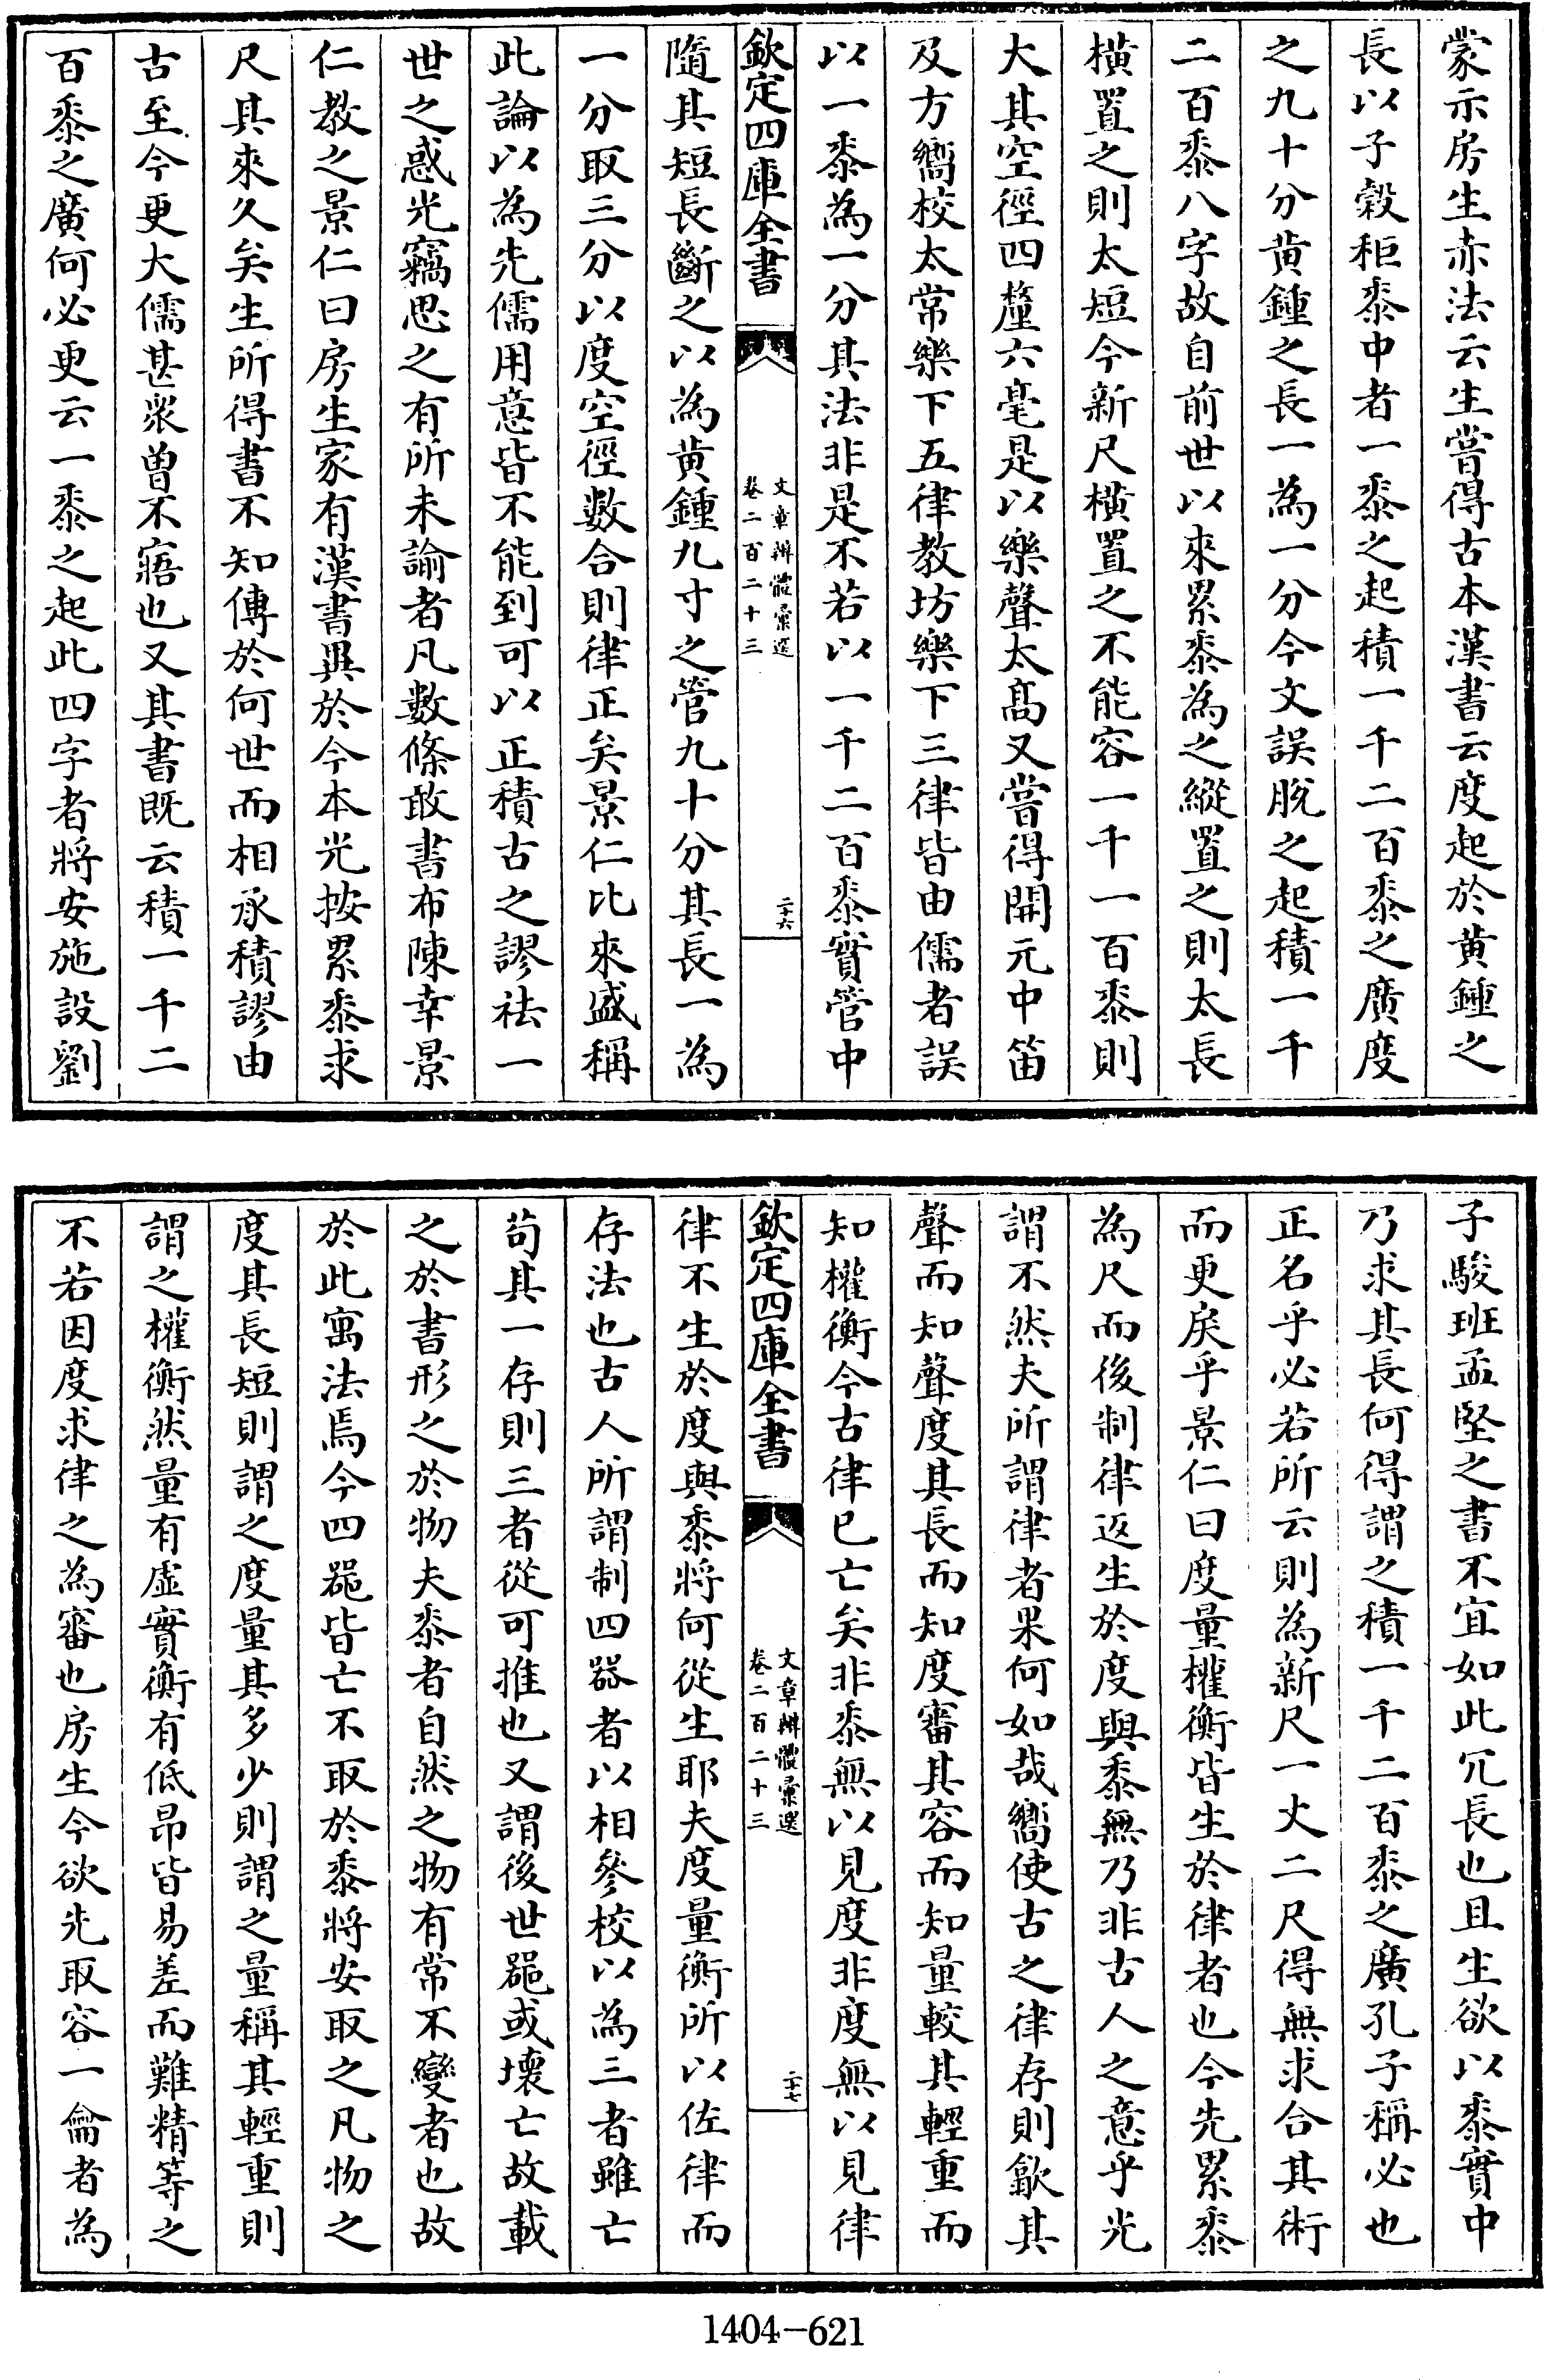 蒙示房生赤法云生嘗得古本漢書云度起於黄鍾之
長以子穀秬黍中者一黍之起積一千二百黍之廣度
之九十分黄鍾之長一為一分今文誤脫之起積一千
二百黍八字故自前世以來累黍為之縱置之則太長
横置之則太短今新尺横置之不能容一千一百黍則
大其空徑四釐六毫是以樂聲太髙又嘗得開元中笛
及方嚮校太常樂下五律教坊樂下三律皆由儒者誤
以一黍為一分其法非是不若以一千二百黍實管中
欽定四庫全書
文章辨體彚選
卷二百二十三
二十六
隨其短長斷之以為黄鍾九寸之管九十分其長一為
一分取三分以度空徑數合則律正矣景仁比來盛稱
此論以為先儒用意皆不能到可以正積古之謬祛一
世之惑光竊思之有所未諭者凡數條敢書布陳幸景
仁教之景仁曰房生家有漢書異於今本光按累黍求
尺其來久矣生所得書不知傳於何世而相承積謬由
古至今更大儒甚衆曽不寤也又其書既云積一千二
百黍之廣何必更云一黍之起此四字者將安施設劉
子駿班孟堅之書不宜如此冗長也且生欲以黍實中
乃求其長何得謂之積一千二百黍之廣孔子稱必也
正名乎必若所云則為新尺一丈二尺得無求合其術
而更戾乎景仁曰度量權衡皆生於律者也今先累黍
為尺而後制律返生於度與黍無乃非古人之意乎光
謂不然夫所謂律者果何如哉嚮使古之律存則歙其
聲而知聲度其長而知度審其容而知量較其輕重而
知權衡今古律已亡矣非黍無以見度非度無以見律
欽定四庫全書
文章辨體彚選
卷二百二十三
二十七
律不生於度與黍將何從生耶夫度量衡所以佐律而
存法也古人所謂制四器者以相參校以為三者雖亡
苟其一存則三者從可推也又謂後世噐或壞亡故載
之於書形之於物夫黍者自然之物有常不變者也故
於此寓法焉今四噐皆亡不取於黍將安取之凡物之
度其長短則謂之度量其多少則謂之量稱其輕重則
謂之權衡然量有虚實衡有低昂皆易差而難精等之
不若因度求律之為審也房生今欲先取容一龠者為
1404-621